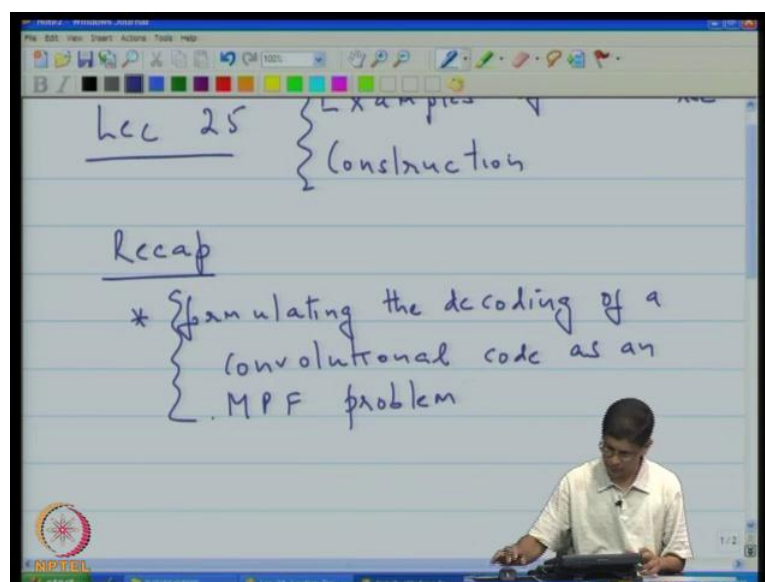 Note2 - Windows Journal
File Edit View Insert Actions Tools Help
100%
B I
Lec 25
Examples of
Construction
Recap
* formulating the decoding of a
convolutional code as an
MPF problem
1/2
NPTEL